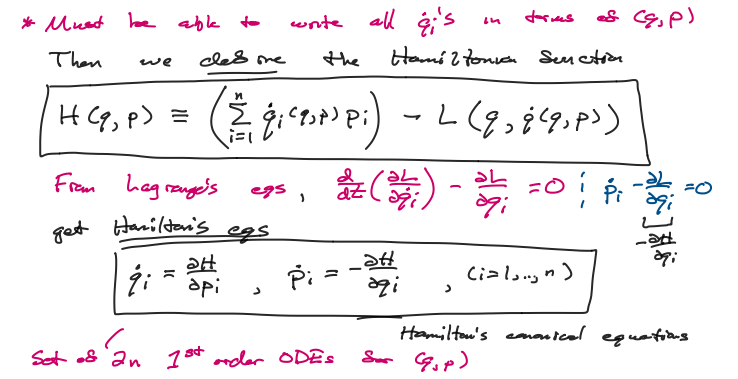 * Must be able to write all q̇ᵢ's in terms of (q,p)
Then we define the Hamiltonian function
H(q,p) ≡ (∑ᵢ₌₁ⁿ q̇ᵢ(q,p) pᵢ) - L(q, q̇(q,p))
From Lagrange's eqs, d/dt(∂L/∂q̇ᵢ) - ∂L/∂qᵢ = 0 ; ṗᵢ - ∂L/∂qᵢ = 0
get Hamilton's eqs
-∂H/∂qᵢ
q̇ᵢ = ∂H/∂pᵢ , ṗᵢ = -∂H/∂qᵢ , (i=1,..,n)
Hamilton's canonical equations
Set of 2n 1st order ODEs for (q,p)